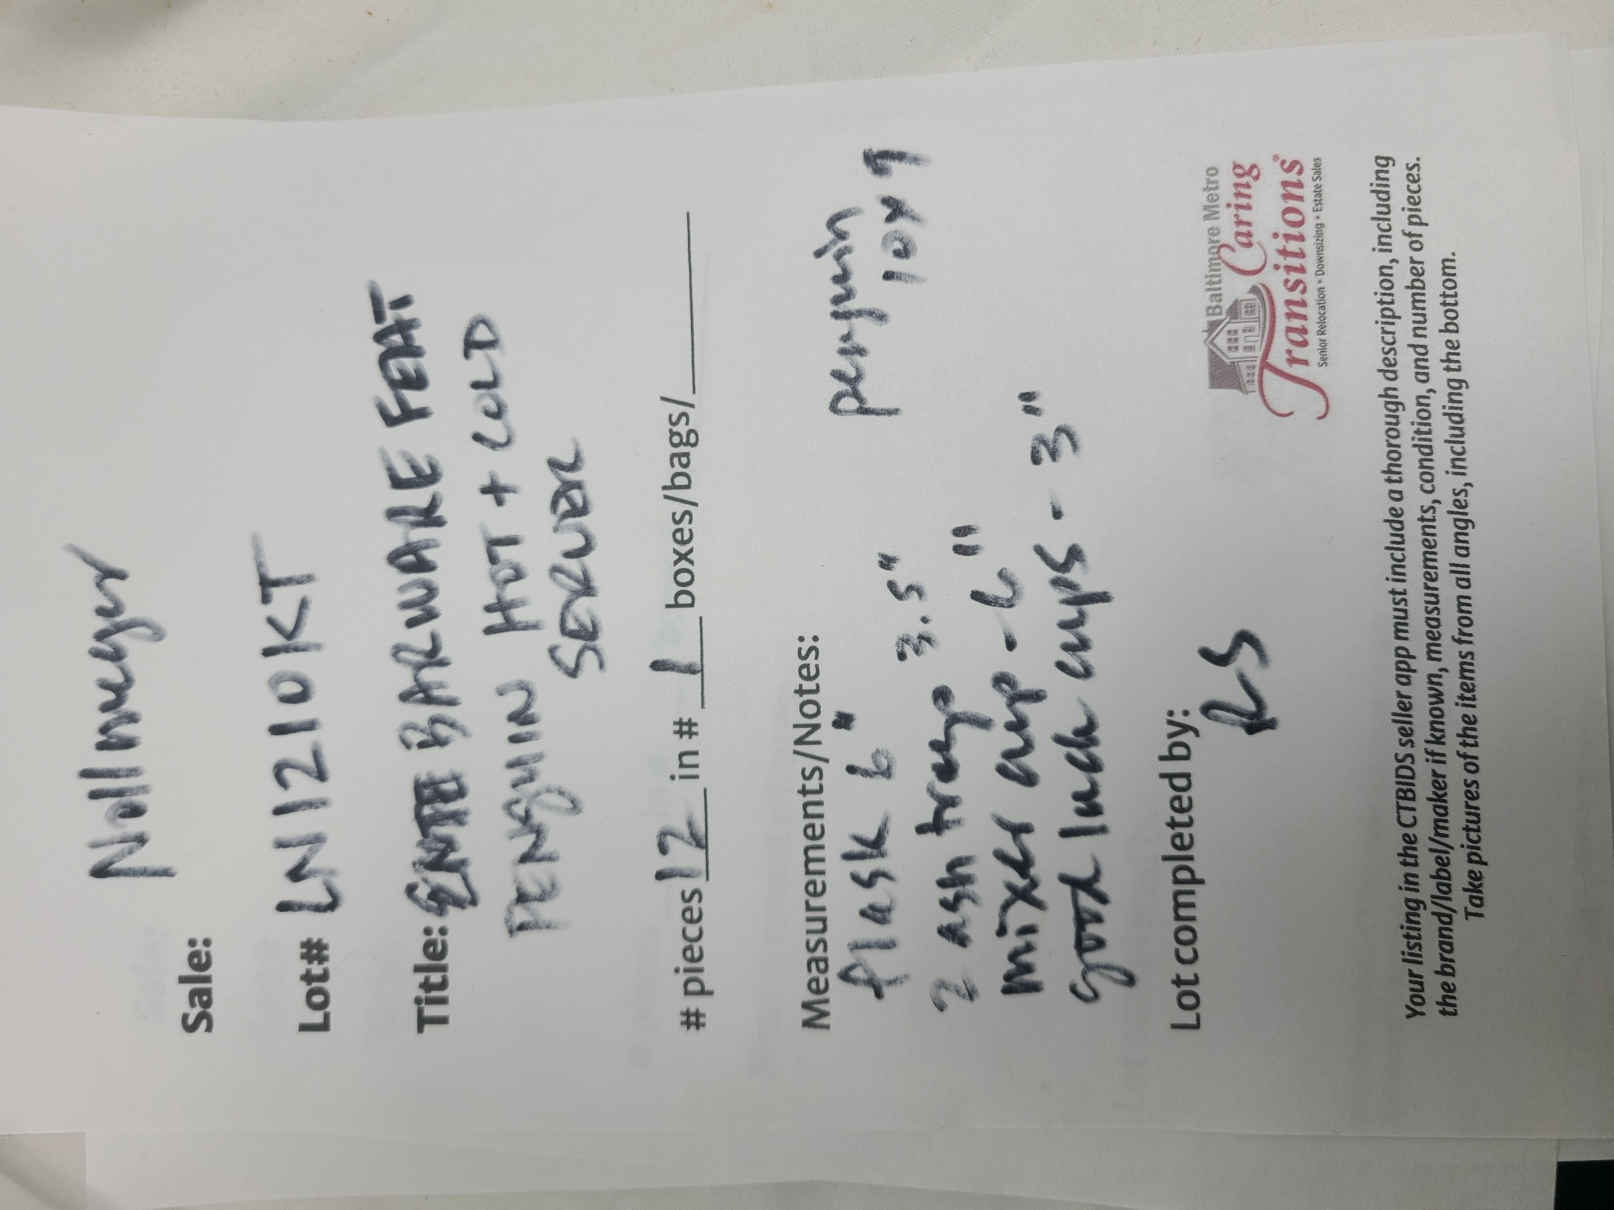 Nollmeyer
Sale:
Lot# LN1210KT
Title: BARWARE FEAT
PENGUIN HOT + COLD
SERVER
# pieces 12 in # 1 boxes/bags/______
Measurements/Notes:
flask 6" penguin
2 ash trays 3.5" 10x9
mixer cup - 6"
good luck cups - 3"
Lot completed by:
RS
Baltimore Metro
Caring
Transitions
Senior Relocation • Downsizing • Estate Sales
Your listing in the CTBIDS seller app must include a thorough description, including
the brand/label/maker if known, measurements, condition, and number of pieces.
Take pictures of the items from all angles, including the bottom.